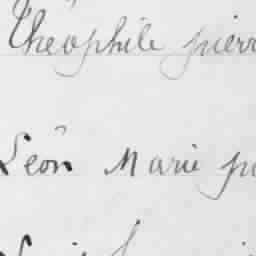 Théophile pierr
Léon Marie pi